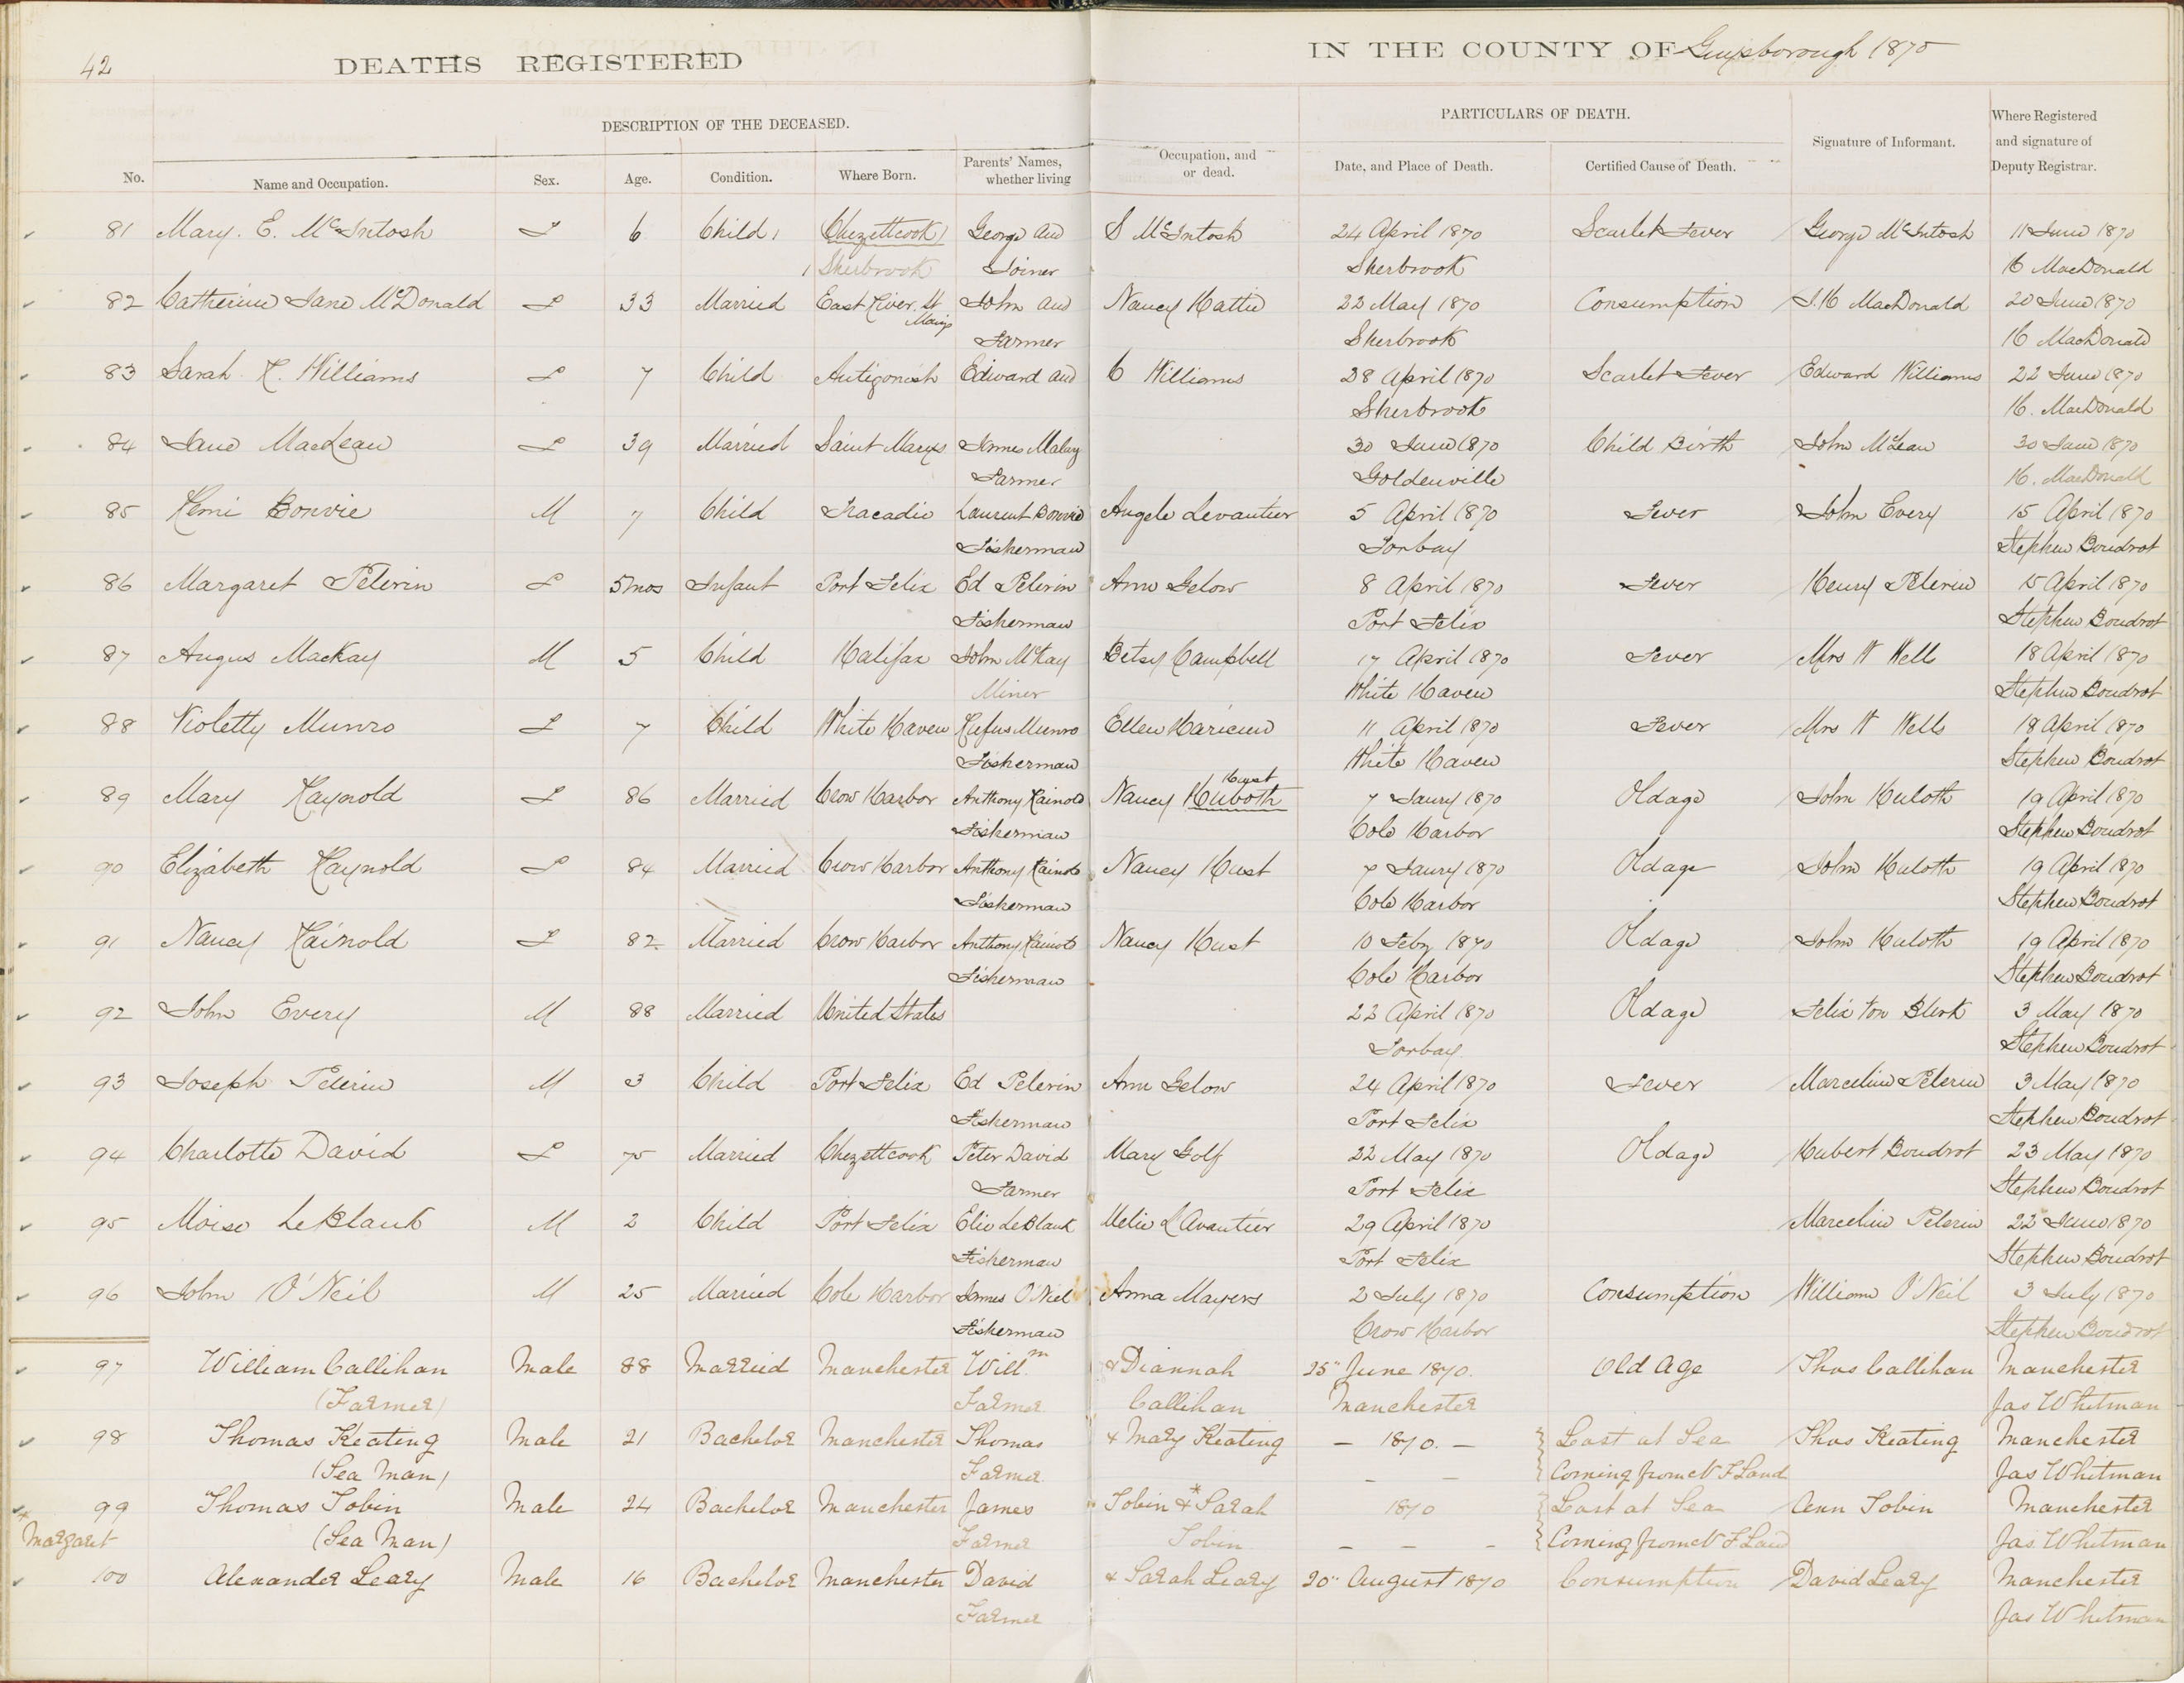 42 DEATHS REGISTERED IN THE COUNTY OF Guysborough 1870
DESCRIPTION OF THE DECEASED. PARTICULARS OF DEATH. Where Registered
and signature of
Deputy Registrar.
No. Name and Occupation. Sex. Age. Condition. Where Born. Parents' Names, whether living Occupation, and or dead. Date, and Place of Death. Certified Cause of Death. Signature of Informant.
81 Mary. E. McIntosh F 6 Child Chezettcook George and S McIntosh 24 April 1870 Scarlet Fever George McIntosh 11 June 1870
Sherbrook Joiner Sherbrook H MacDonald
82 Catherine Jane McDonald F 33 Married East River St John and Nancy Hattie 22 May 1870 Consumption J.H MacDonald 20 June 1870
Marys Farmer Sherbrook H MacDonald
83 Sarah R. Williams F 7 Child Antigonish Edward and C Williams 28 April 1870 Scarlet Fever Edward Williams 22 June 1870
Sherbrook H. MacDonald
84 Jane MacLean F 39 Married Saint Marys James Malay 30 June 1870 Child Birth John McLean 30 June 1870
Farmer Goldenville H. MacDonald
85 Remi Bonvie M 7 Child Tracadie Laurent Bonvie Angele Levantier 5 April 1870 Fever John Every 15 April 1870
Fisherman Torbay Stephen Boudrot
86 Margaret Pelerin F 5 mos Infant Port Felix Ed Pelerin Ann Gelow 8 April 1870 Fever Henry Pelerin 15 April 1870
Fisherman Port Felix Stephen Boudrot
87 Angus MacKay M 5 Child Halifax John McKay Betsy Campbell 17 April 1870 Fever Mrs W Wells 18 April 1870
Miner White Haven Stephen Boudrot
88 Violetty Munro F 7 Child White Haven Rufus Munro Ellen 11 April 1870 Fever Mrs W Wells 18 April 1870
Fisherman White Haven Stephen Boudrot
89 Mary Raynold F 86 Married Crow Harbor Anthony Rainold Nancy Huboth 7 Jaury 1870 Oldage John Huloth 19 April 1870
Fisherman Cole Harbor Stephen Boudrot
90 Elizabeth Raynold F 84 Married Crow Harbor Anthony Rainold Nancy Hust 7 Jaury 1870 Oldage John Huloth 19 April 1870
Fisherman Cole Harbor Stephen Boudrot
91 Nancy Rainold F 82 Married Crow Harbor Anthony Rainold Nancy Hust 10 Feby 1870 Oldage John Huloth 19 April 1870
Fisherman Cole Harbor Stephen Boudrot
92 John Every M 88 Married United States 22 April 1870 Oldage Felix 3 May 1870
Torbay Stephen Boudrot
93 Joseph Pelerin M 3 Child Port Felix Ed Pelerin Ann Gelow 24 April 1870 Fever Marcelin Pelerin 3 May 1870
Fisherman Port Felix Stephen Boudrot
94 Charlotte David F 75 Married Chezettcook Peter David Mary Golf 22 May 1870 Oldage Hubert Boudrot 23 May 1870
Farmer Port Felix Stephen Boudrot
95 Moise LeBlank M 2 Child Port Felix Elie LeBlank Melie L'Avantier 29 April 1870 Marcelin Pelerin 22 June 1870
Fisherman Port Felix Stephen Boudrot
96 John O'Neil M 25 Married Cole Harbor James O'Neil Anna Mayers 2 July 1870 Consumption William O'Neil 3 July 1870
Fisherman Crow Harbor Stephen Boudrot
97 William Callihan Male 88 Married Manchester Willm & Diannah 25" June 1870. Old Age Thos Callihan Manchester
(Farmer) Farmer Callihan Manchester Jas Whitman
98 Thomas Keating Male 21 Bachelor Manchester Thomas & Mary Keating — 1870. — Lost at Sea Thos Keating Manchester
(Sea Man) Farmer — — Coming from N F Land Jas Whitman
99 Thomas Tobin Male 24 Bachelor Manchester James Tobin &* Sarah 1870 Lost at Sea Ann Tobin Manchester
* Margaret (Sea Man) Farmer Tobin — — - Coming from N F Land Jas Whitman
100 Alexander Leary Male 16 Bachelor Manchester David & Sarah Leary 20" August 1870 Consumption David Leary Manchester
Farmer Jas Whitman